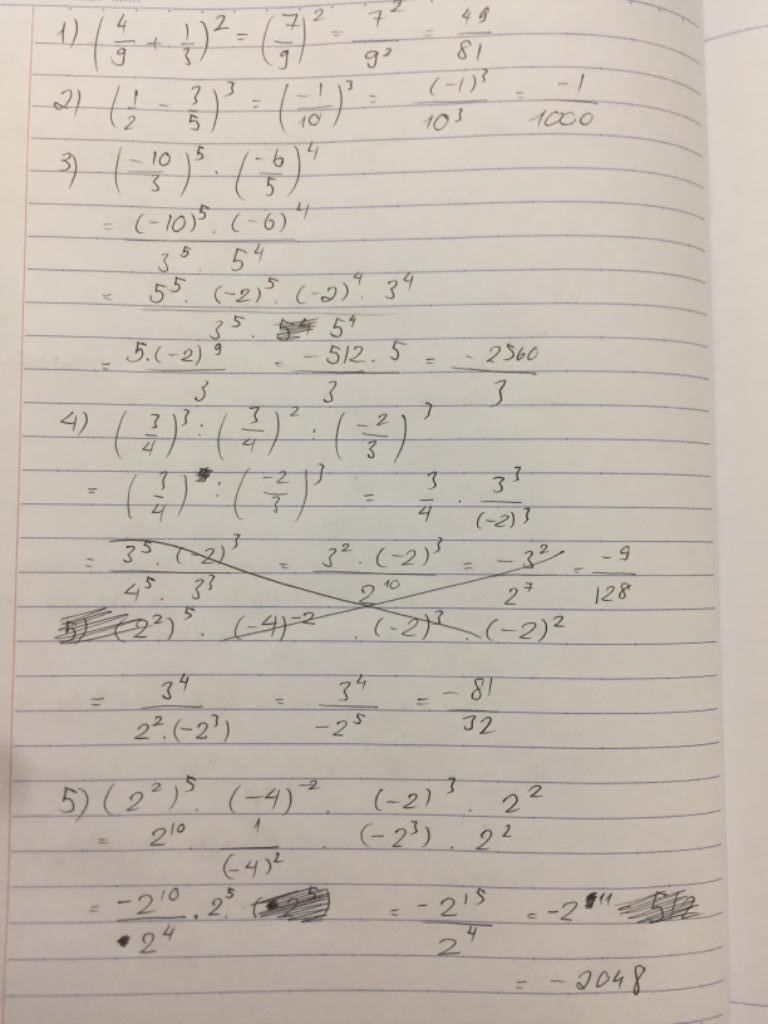 1) (4/9 + 1/3)² = (7/9)² = 7²/9² = 49/81
2) (1/2 - 3/5)³ = (-1/10)³ = (-1)³/10³ = -1/1000
3) (-10/3)⁵ . (-6/5)⁴
= (-10)⁵ . (-6)⁴ / 3⁵ . 5⁴
= 5⁵ . (-2)⁵ . (-2)⁴ . 3⁴ / 3⁵ . 5⁴
= 5.(-2)⁹ / 3 = -512 . 5 / 3 = -2560 / 3
4) (3/4)³ : (3/4)² : (-2/3)³
= (3/4) : (-2/3)³ = 3/4 . 3³/(-2)³
= 3⁵ . (-2)³ / 4⁵ . 3³ = 3² . (-2)³ / 2¹⁰ = -3² / 2⁷ = -9/128
5) (2²)⁵ . (-4)⁻² . (-2)³ . (-2)²
= 3⁴ / 2².(-2³) = 3⁴ / -2⁵ = -81/32
5) (2²)⁵ . (-4)⁻² . (-2)³ . 2²
= 2¹⁰ . 1/(-4)² . (-2³) . 2²
= -2¹⁰/2⁴ . 2⁵ = -2¹⁵/2⁴ = -2¹¹
= -2048